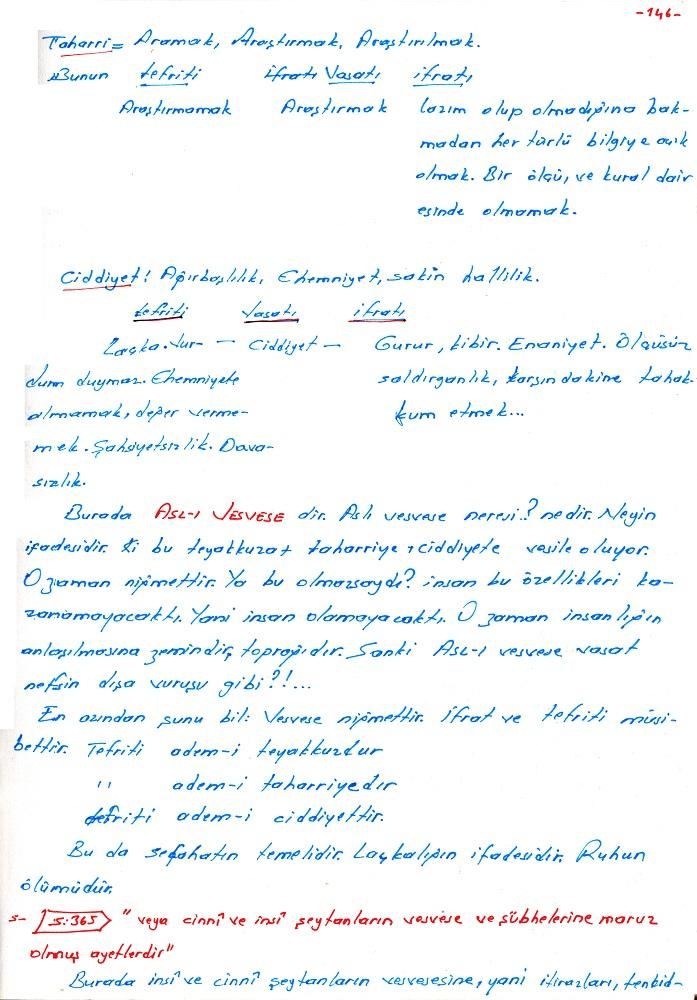 -146-
Taharri = Aramak, Araştırmak, Araştırılmak.
Bunun tefriti ifratı Vasatı ifratı
Araştırmamak Araştırmak lazım olup olmadığına bak-
madan her türlü bilgiye açık
olmak. Bir ölçü, ve kural dair
esinde olmamak.
Ciddiyet! Ağırbaşlılık, Ehemniyet, sakin hallilik.
tefriti Vasatı ifratı
Laçka. Vur- — Ciddiyet — Gurur, kibir. Enaniyet. Ölçüsüz
dum duymaz. Ehemniyete saldırganlık, karşındakine tahak-
almamak, değer verme- kum etmek...
mek. Şahsiyetsizlik. Dava-
sızlık.
Burada ASL-I VESVESE dir. Aslı vesvese neresi..? nedir. Neyin
ifadesidir. Ki bu teyakkuza + taharriye + ciddiyete vesile oluyor.
O zaman niğmettir. Ya bu olmasaydı? insan bu özellikleri ka-
zanamayacaktı. Yani insan olamayacaktı. O zaman insanlığın
anlaşılmasına zemindir, toprağıdır. Sanki ASL-I vesvese vasat
nefsin dışa vuruşu gibi?!...
En azından şunu bil: Vesvese niğmettir. İfrat ve tefriti müsi-
bettir. Tefriti adem-i teyakkuzdur
" adem-i taharriyedir
tefriti adem-i ciddiyettir.
Bu da sefahatın temelidir. Laçkalığın ifadesidir. Ruhun
ölümüdür.
5- S:365 "veya cinnî ve insî şeytanların vesvese ve şübhelerine maruz
olmuş ayetlerdir"
Burada insî ve cinnî şeytanların vesvesesine, yani itirazları, tenkid-